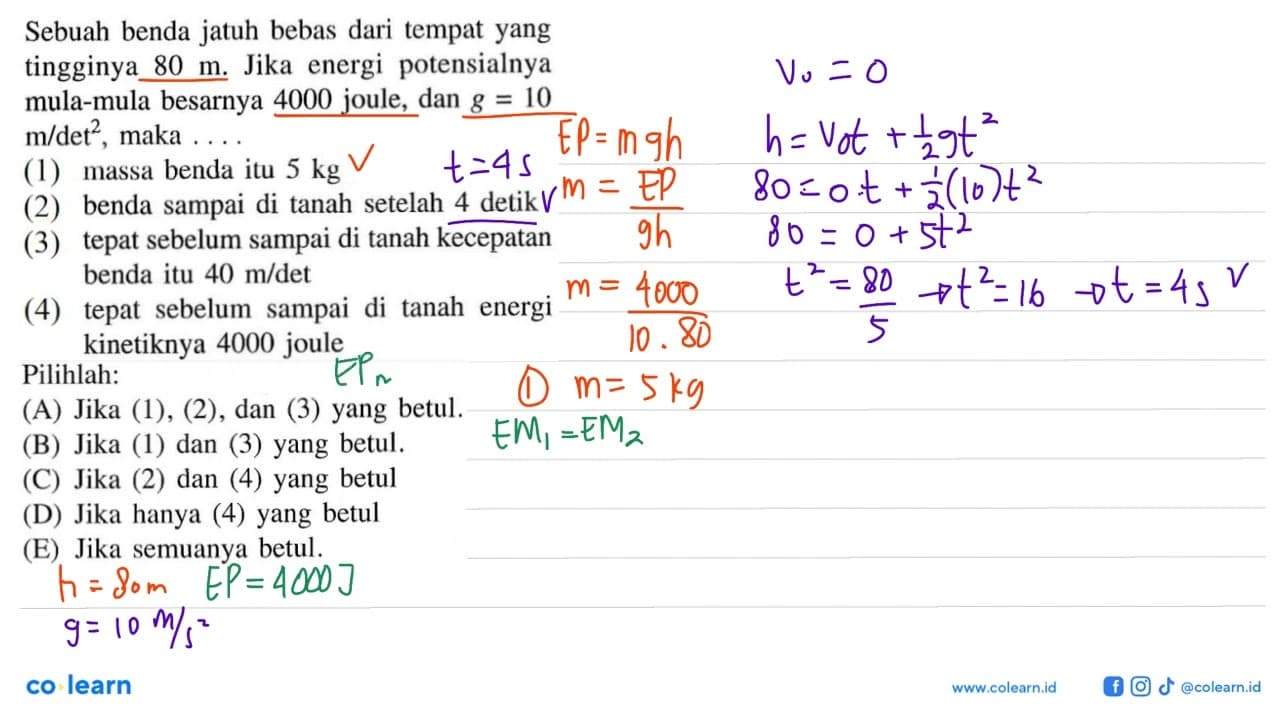 Sebuah benda jatuh bebas dari tempat yang
tingginya 80 m. Jika energi potensialnya
mula-mula besarnya 4000 joule, dan g = 10
m/det², maka . . . .
(1) massa benda itu 5 kg ✓
(2) benda sampai di tanah setelah 4 detik ✓
(3) tepat sebelum sampai di tanah kecepatan
benda itu 40 m/det
(4) tepat sebelum sampai di tanah energi
kinetiknya 4000 joule
Pilihlah:
(A) Jika (1), (2), dan (3) yang betul.
(B) Jika (1) dan (3) yang betul.
(C) Jika (2) dan (4) yang betul
(D) Jika hanya (4) yang betul
(E) Jika semuanya betul.
h = 80 m EP = 4000 J
g = 10 m/s²
t = 4 s
EP = mgh
m = EP/gh
m = 4000/10 . 80
① m = 5 kg
EM₁ = EM₂
V₀ = 0
h = V₀t + 1/2 gt²
80 = 0.t + 1/2 (10)t²
80 = 0 + 5t²
t² = 80/5 → t² = 16 → t = 4 s ✓
co learn
www.colearn.id
@colearn.id